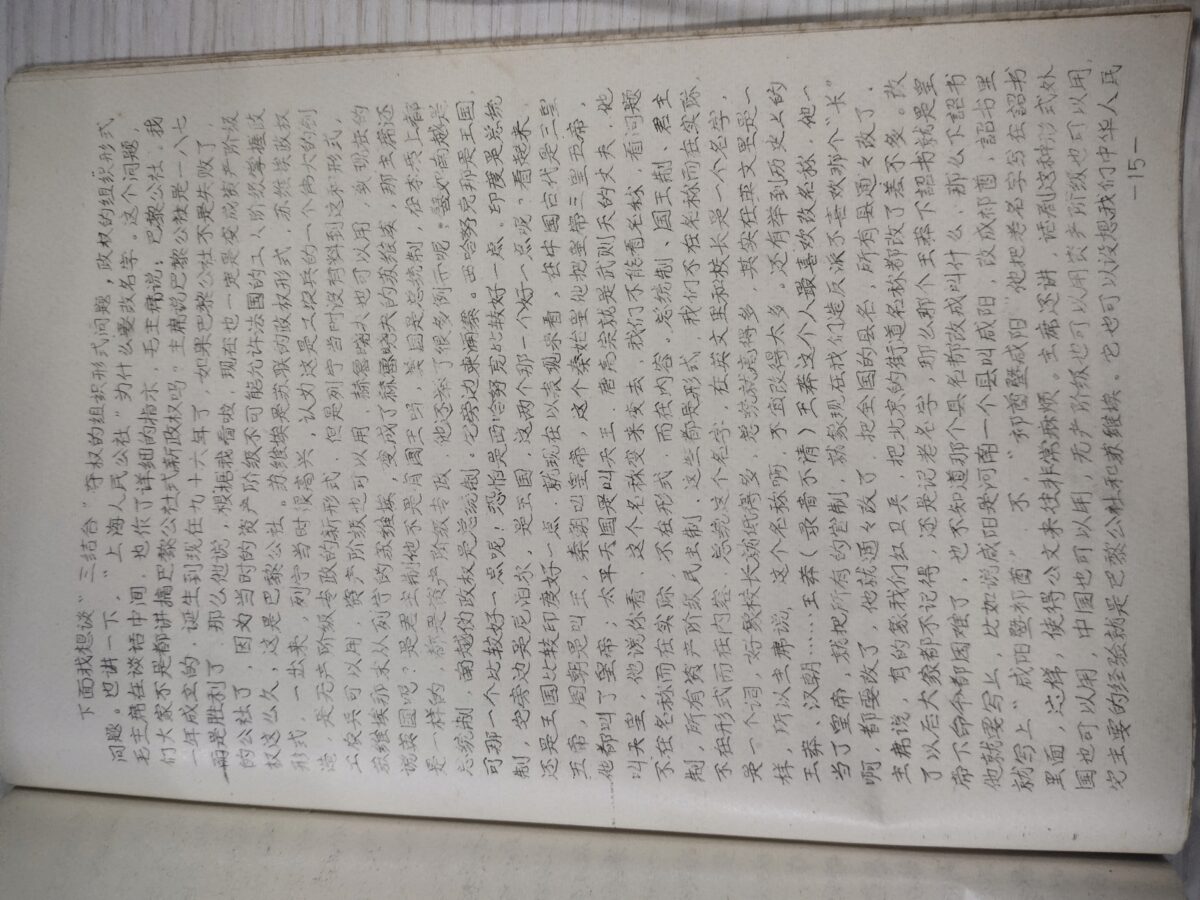 下面我想谈“三结合”夺权的组织形式问题，政权的组织形式
问题。也讲一下，“上海人民公社”为什么要改名字。这个问题，
毛主席在谈话中间，也作了详细的指示，毛主席说：巴黎公社，我
们大家不是都讲搞巴黎公社式新政权吗。主席说巴黎公社是一八七
一年成立的，诞生到现在九十六年了，如果巴黎公社不是失败了，
而是胜利了，那么他说，根据我看啦，现在也一定是变成资产阶级
的公社了，因为当时的资产阶级不可能允许法国的工人阶级掌握政
权这么久，这是巴黎公社。苏维埃是苏联的政权形式，苏维埃政权
形式，一出来，列宁当时很高兴，认为这是工农兵的一个伟大的创
造，是无产阶级专政的新形式，但是列宁当时没有料到这种形式，
工农兵可以用，资产阶级也可以用，赫鲁晓夫也可以用，到现在的
苏维埃那末从列宁的苏维埃，变成了赫鲁晓夫的苏维埃，那主席还
说英国呢？是君主制他不是有国王吗，美国是总统制，在本质上都
是一样的，都是资产阶级专政，他还举了很多例子呢，譬如南越是
总统制，南越伪政权是总统制。它旁边柬浦寨。西哈努克那是王国，
可那一个比较好一点呢！恐怕是西哈努克比较好一点。印度是总统
制，它旁边是尼泊尔，是王国，这两个那一个好一点呢？看起来，
还是王国比较印度好一点，就现在以表现来看，在中国古代是三皇
五帝，周朝是叫王，秦朝叫皇帝，这个秦始皇他把皇帝三皇五帝，
他都叫了皇帝；太平天国是叫天王，唐高宗就是武则天的丈夫，他
叫天皇，他说你看，这个名称变来变去，我们不能看名称，看问题
不在名称而在实际，不在形式，而在内容。总统制、国王制、君主
制，所有资产阶级民主制，这些都是形式，我们不在名称而在实际，
不在形式而在内容，总统这个名字，在英文里和校长是一个名字，
是一个词，好象校长就低得多，总统就高得多，其实在英文里是一
样，所以主席说，这个名称啊，不宜改得太多。还有举到历史上的
王莽、汉朝……王莽（录音不清）王莽这个人最喜欢改名称，他一
当了皇帝，就把所有的官制，就象现在我们造反派不喜欢那个“长”
啊，都要改了，他就通々改了，把全国的县名，所有县通々改了，
主席说，有的象我们红卫兵，把北京的街道名称都改了差不多。改
了以后大家都不记得，还是记老名字，那么那个王莽下詔书就是皇
帝下命令都困难了，也不知道那个县名都改成叫什么，那么下詔书
他就要写上，比如说咸阳是河南一个县叫咸阳，改成祁酋，詔书里
就写上“咸阳暨祁酋”，不，“祁酋暨咸阳”他把老名字写在詔书
里面，这样，使得公文来往非常麻烦。主席还讲，话剧这种形式外
国也可以用，中国也可以用，无产阶级也可以用资产阶级也可以用，
它主要的经验就是巴黎公社和苏维埃。它也可以设想我们中华人民
—15—